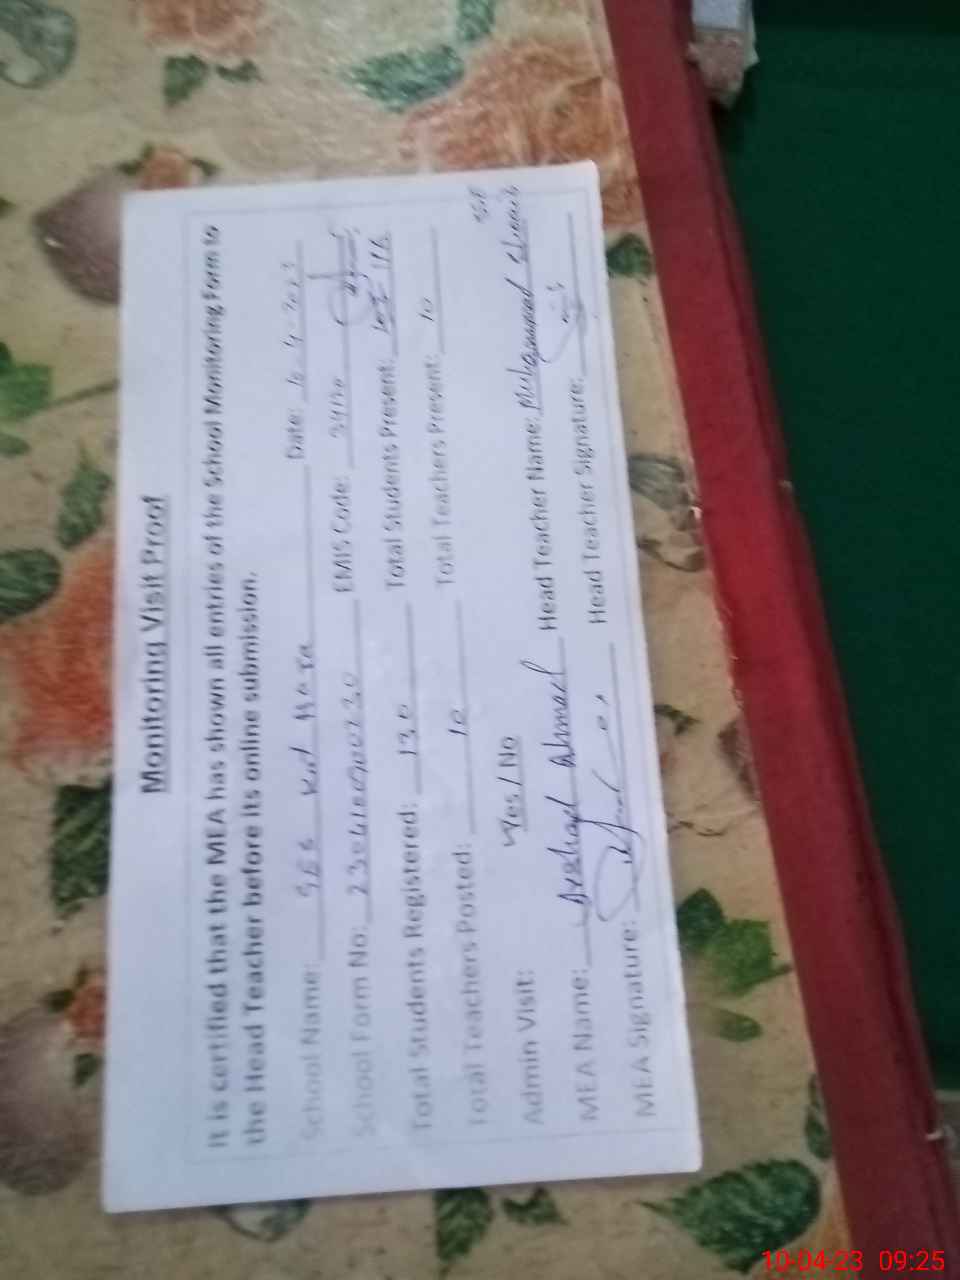 Monitoring Visit Proof
It is certified that the MEA has shown all entries of the School Monitoring Form to
the Head Teacher before its online submission.
School Name: Date: 10-4-2023
School Form No: EMIS Code:
Total Students Registered: 130 Total Students Present: 116
Total Teachers Posted: 10 Total Teachers Present: 10
Admin Visit: Yes / No
MEA Name: Arshad Ahmad Head Teacher Name: Muhammad
MEA Signature: Head Teacher Signature:
10-04-23 09:25